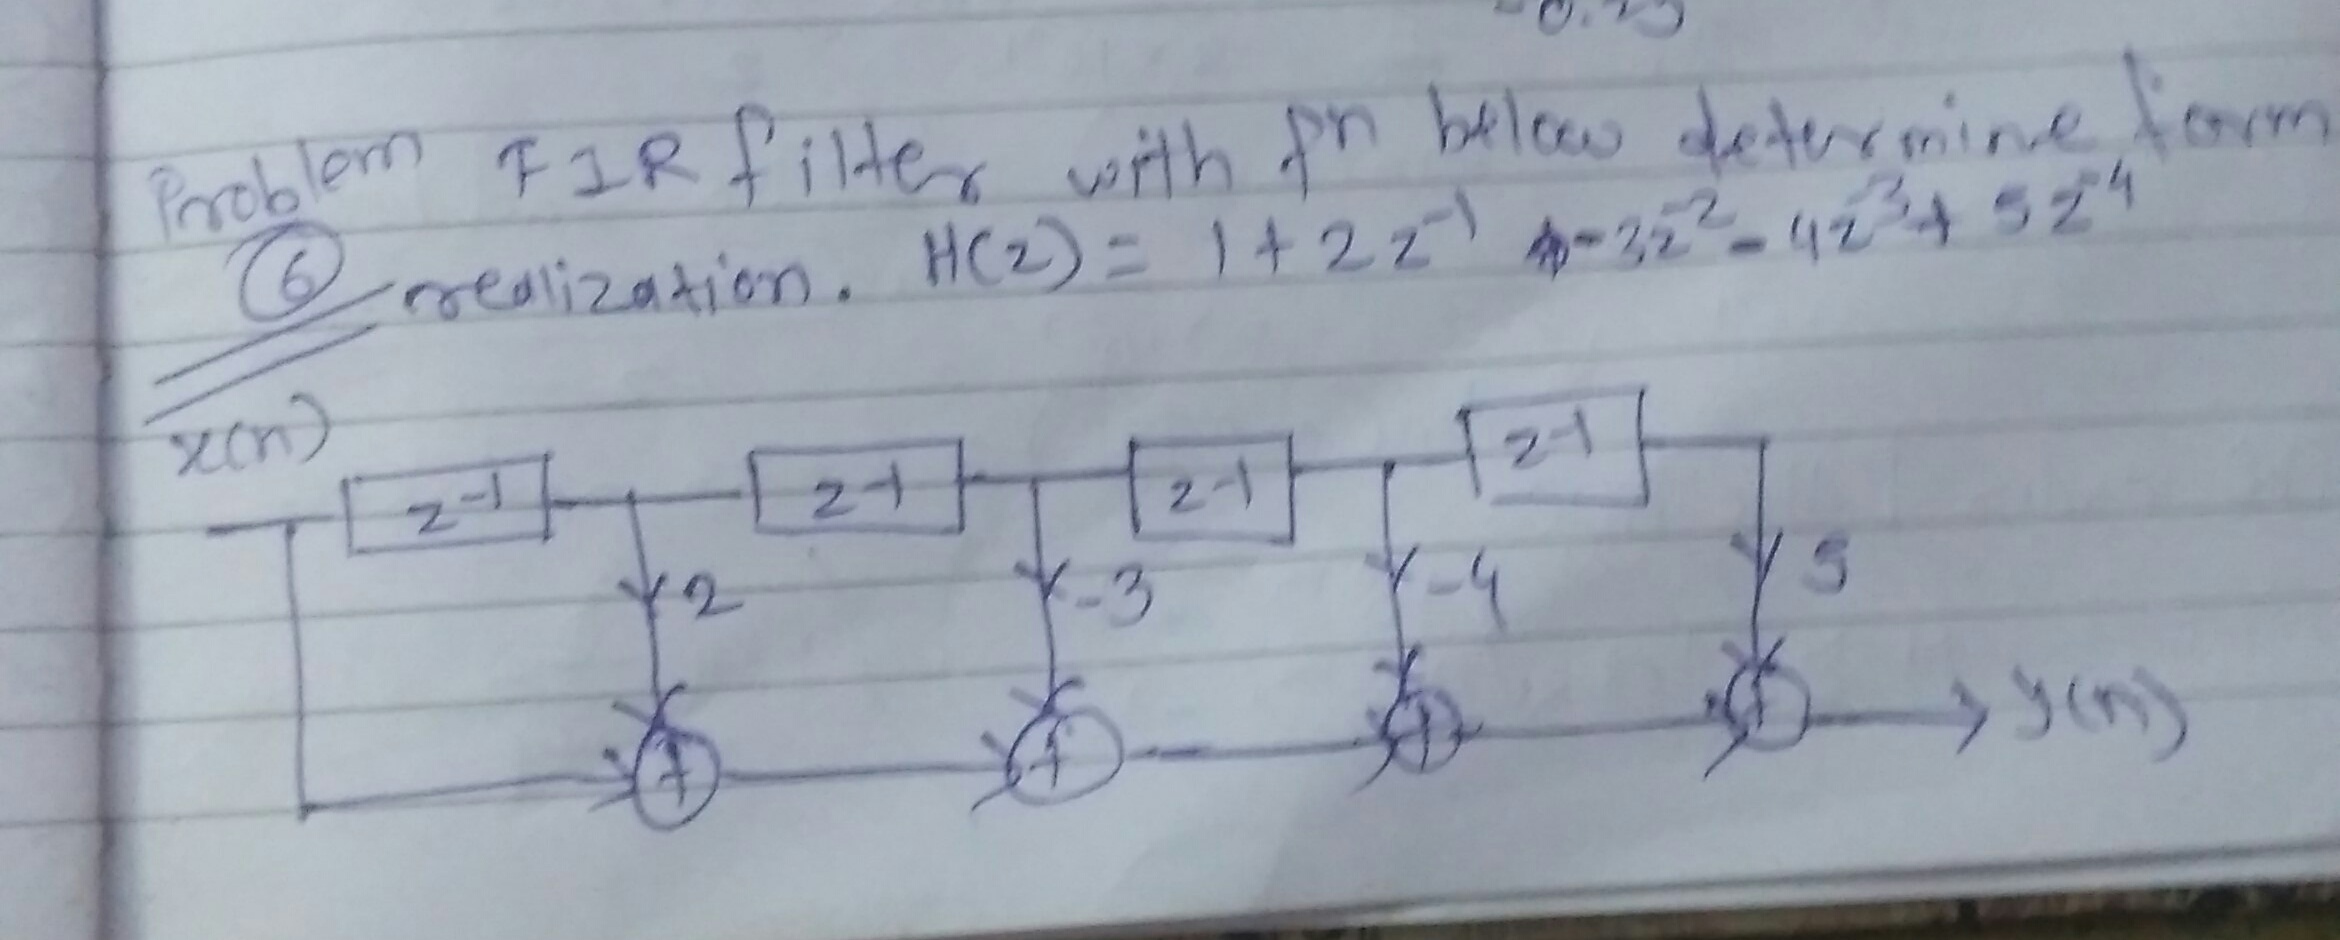 Problem FIR filter with fn below determine form
⑥ realization. H(z) = 1 + 2z⁻¹ - 3z⁻² - 4z⁻³ + 5z⁻⁴
x(n)
z⁻¹ z-1 z-1 z-1
2 -3 -4 5
+ + + + y(n)